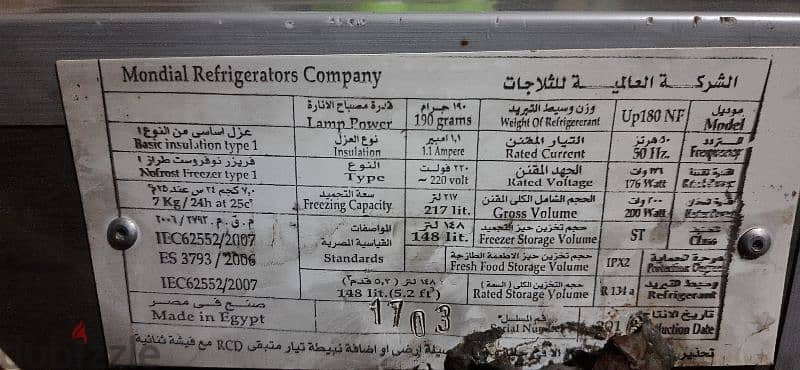 Mondial Refrigerators Company الشركة العالمية للثلاجات
موديل Up180 NF وزن وسيط التبريد ١٩٠ جرام قدرة مصباح الانارة
Model Weight Of Refrigerant 190 grams Lamp Power
التردد ٥٠ هرتز التيار المقنن ١,١ امبير نوع العزل عزل اساسى من النوع١
Frequency 50 Hz. Rated Current 1.1 Ampere Insulation Basic insulation type 1
١٧٦ وات الجهد المقنن ٢٢٠ فولت النوع فريزر نوفروست طراز ١
176 Watt Rated Voltage ~ 220 volt Type Nofrost Freezer type 1
٢٠٠ وات الحجم الشامل الكلى المقنن ٢١٧ لتر سعة التجميد ٧,٠ كجم ٢٤ س عند ٢٥°
200 Watt Gross Volume 217 lit. Freezing Capacity 7 Kg / 24h at 25c'
ST حجم تخزين حيز التجميد ١٤٨ لتر المواصفات م. ق. م. ٢٠٠٦/٣٧٩٣
Class Freezer Storage Volume 148 lit. القياسية المصرية IEC62552/2007
درجة الحماية IPX2 حجم تخزين حيز الاطعمة الطازجة Standards ES 3793 / 2006
Protection Degree Fresh Food Storage Volume
وسيط التبريد R 134 a حجم التخزين الكلى (السعة) ١٤٨ لتر (٥,٢ قدم٣) IEC62552/2007
Refrigerant Rated Storage Volume 148 lit.(5.2 ft³)
تاريخ الانتاج رقم المسلسل 1703 صنع فى مصر
Production Date Serial Number Made in Egypt
تحذير ارضى او اضافة نبيطة تيار متبقى RCD مع فيشة ثنائية